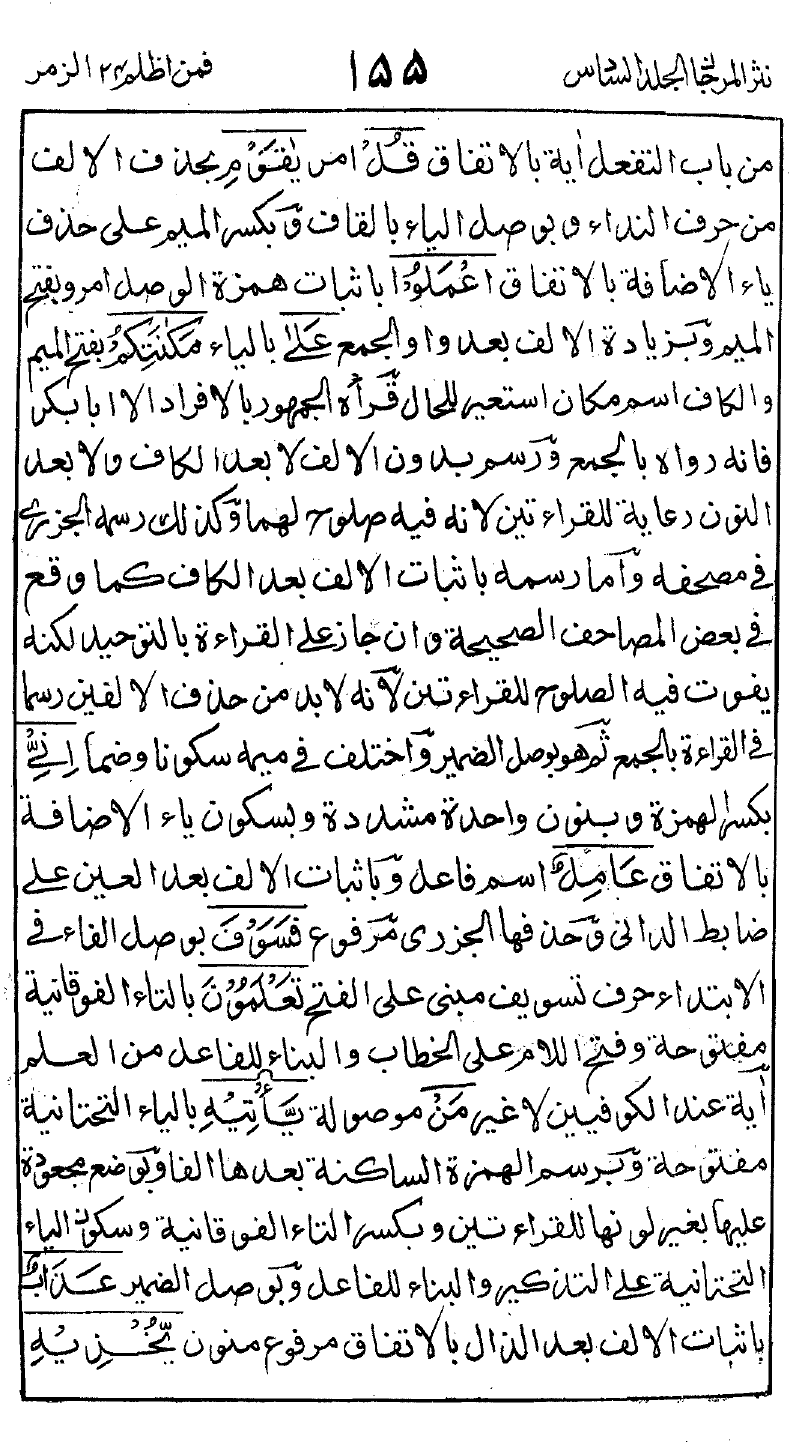 نثر المرجان الجلد السادس ١٥٥ فمن اظلم ٢٤ الزمر
من باب التفعل اٰية بالاتفاق قُلْ امر يٰقَوْمِ بحذف الالف
من حرف النداء وبوصل الياء بالقاف وبكسر الميم على حذف
ياء الاضافة بالاتفاق اعْمَلُوْا باثبات همزة الوصل امر وبفتح
الميم وبزيادة الالف بعد واو الجمع عَلٰى بالياء مَكَانَتِكُمْ بفتح الميم
والكاف اسم مكان استعير للحال قرأه الجمهور بالافراد الا ابا بكر
فانه رواه بالجمع ورسم بدون الالف لا بعد الكاف ولا بعد
النون رعاية للقراءتين لانه فيه صلوح لهما وكذلك رسمه الجزرى
فى مصحفه وأما رسمه باثبات الالف بعد الكاف كما وقع
فى بعض المصاحف الصحيحة وان جاز على القراءة بالتوحيد لكنه
يفوت فيه الصلوح للقراءتين لأنه لابد من حذف الالفين رسما
فى القراءة بالجمع ثم هو بوصل الضمير واختلف فى ميمه سكونا وضما اِنِّىْ
بكسر الهمزة وبنون واحدة مشددة وبسكون ياء الاضافة
بالاتفاق عَامِلٌ اسم فاعل وباثبات الالف بعد العين على
ضابط الدانى وحذفها الجزرى مرفوع فَسَوْفَ بوصل الفاء فى
الابتداء حرف تسويف مبنى على الفتح تَعْلَمُوْنَ بالتاء الفوقانية
مفتوحة وفتح اللام على الخطاب والبناء للفاعل من العلم
اٰية عند الكوفيين لا غير مَنْ موصولة يَّأْتِيْهِ بالياء التحتانية
مفتوحة وبرسم الهمزة الساكنة بعدها الفا وبوضع مجعودة
عليها بغير لونها للقراءتين وبكسر التاء الفوقانية وسكون الياء
التحتانية على التذكير والبناء للفاعل وبوصل الضمير عَذَابٌ
باثبات الالف بعد الذال بالاتفاق مرفوع منون يُّخْزِيْهِ